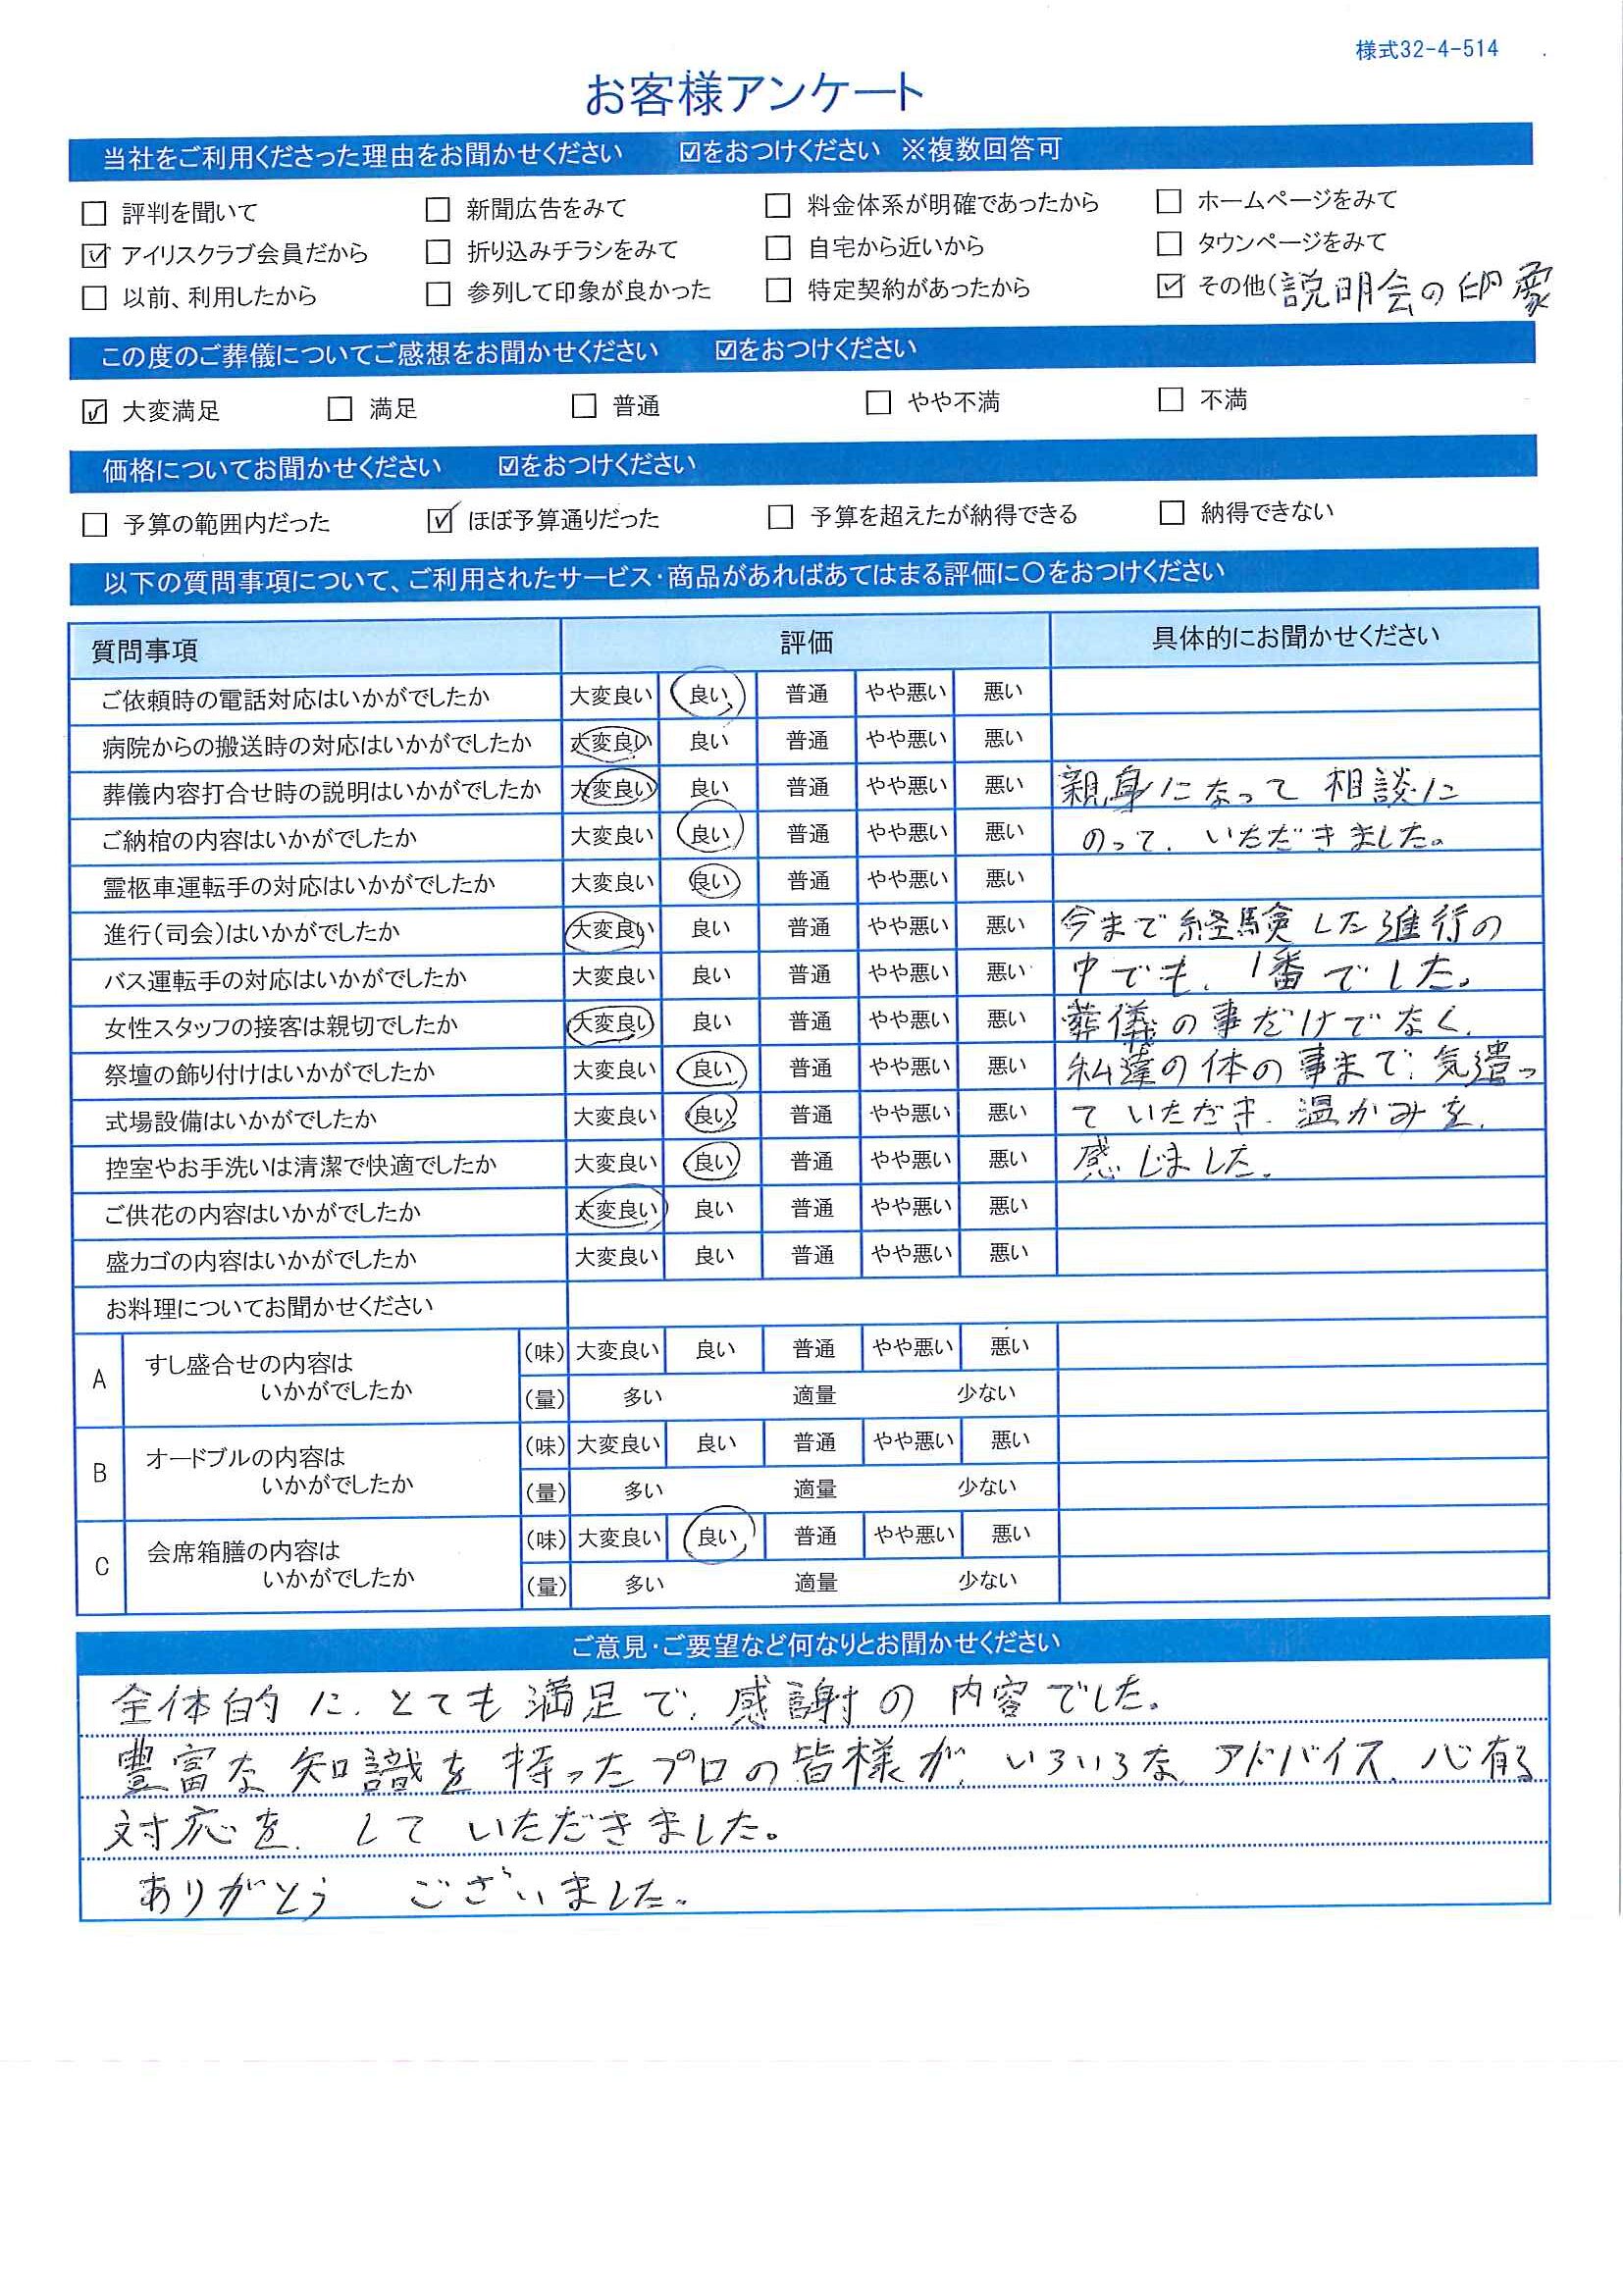 様式32-4-514
お客様アンケート
当社をご利用くださった理由をお聞かせください ☑をおつけください ※複数回答可
□ 評判を聞いて □ 新聞広告をみて □ 料金体系が明確であったから □ ホームページをみて
☑ アイリスクラブ会員だから □ 折り込みチラシをみて □ 自宅から近いから □ タウンページをみて
□ 以前、利用したから □ 参列して印象が良かった □ 特定契約があったから ☑ その他(説明会の印象
この度のご葬儀についてご感想をお聞かせください ☑をおつけください
☑ 大変満足 □ 満足 □ 普通 □ やや不満 □ 不満
価格についてお聞かせください ☑をおつけください
□ 予算の範囲内だった ☑ ほぼ予算通りだった □ 予算を超えたが納得できる □ 納得できない
以下の質問事項について、ご利用されたサービス・商品があればあてはまる評価に〇をおつけください
質問事項 評価 具体的にお聞かせください
ご依頼時の電話対応はいかがでしたか 大変良い 良い 普通 やや悪い 悪い
病院からの搬送時の対応はいかがでしたか 大変良い 良い 普通 やや悪い 悪い
葬儀内容打合せ時の説明はいかがでしたか 大変良い 良い 普通 やや悪い 悪い 親身になって相談に
ご納棺の内容はいかがでしたか 大変良い 良い 普通 やや悪い 悪い のって、いただきました。
霊柩車運転手の対応はいかがでしたか 大変良い 良い 普通 やや悪い 悪い
進行(司会)はいかがでしたか 大変良い 良い 普通 やや悪い 悪い 今まで経験した進行の
バス運転手の対応はいかがでしたか 大変良い 良い 普通 やや悪い 悪い 中でも、1番でした。
女性スタッフの接客は親切でしたか 大変良い 良い 普通 やや悪い 悪い 葬儀の事だけでなく、
祭壇の飾り付けはいかがでしたか 大変良い 良い 普通 やや悪い 悪い 私達の体の事まで、気遣っ
式場設備はいかがでしたか 大変良い 良い 普通 やや悪い 悪い ていただき、温かみを、
控室やお手洗いは清潔で快適でしたか 大変良い 良い 普通 やや悪い 悪い 感じました。
ご供花の内容はいかがでしたか 大変良い 良い 普通 やや悪い 悪い
盛カゴの内容はいかがでしたか 大変良い 良い 普通 やや悪い 悪い
お料理についてお聞かせください
A すし盛合せの内容は (味) 大変良い 良い 普通 やや悪い 悪い
いかがでしたか (量) 多い 適量 少ない
B オードブルの内容は (味) 大変良い 良い 普通 やや悪い 悪い
いかがでしたか (量) 多い 適量 少ない
C 会席箱膳の内容は (味) 大変良い 良い 普通 やや悪い 悪い
いかがでしたか (量) 多い 適量 少ない
ご意見・ご要望など何なりとお聞かせください
全体的に、とても満足で、感謝の内容でした。
豊富な知識を持ったプロの皆様が、いろいろな、アドバイス、心有る
対応を、していただきました。
ありがとう ございました。